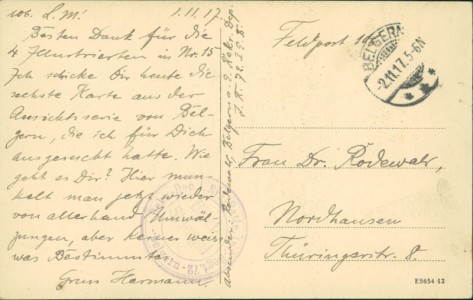 L. M! 1.11.17.
Besten Dank für die
4 Illustrierten in No. 15
Ich schicke Dir heute die
sechste Karte aus der
Ansichtsserie von Bel-
gern, die ich für Dich
ausgesucht hatte. Wie
geht es Dir? Hier mun-
kelt man jetzt wieder
von allerhand Umwäl-
zungen, aber keiner weiss
was Bestimmtes.
Gruss Hermann.
Absender: Rodewald, Belgern a. E. Rekr. Dep.
Feldpost
BELGERN
-2.11.17. 5-6N
Frau Dr. Rodewald,
Nordhausen
Thüringerstr. 8.
E5654 12